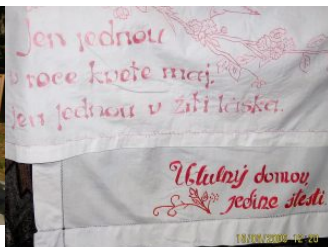 Jen jednou
v roce kvete maj.
Jen jednou v žití láska.
Útulný domov,
jediné štěstí.